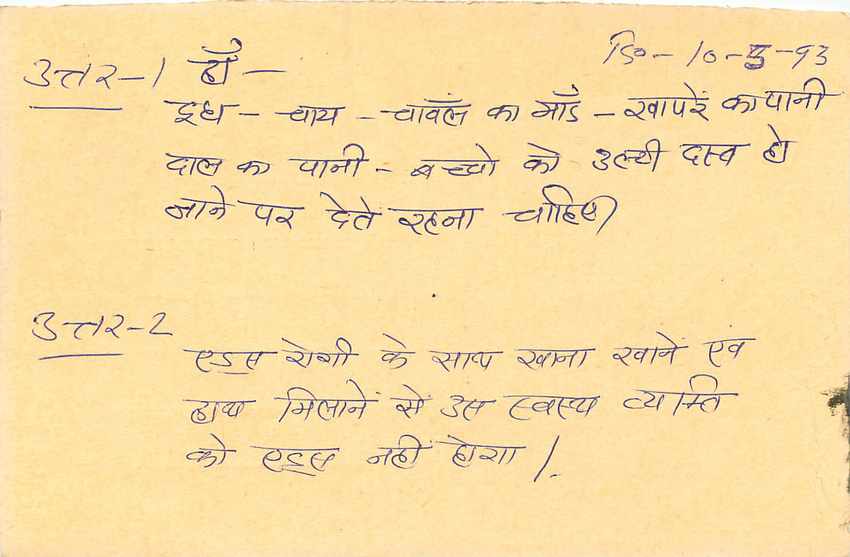 दि०-10-5-93
उत्तर-1 हाँ -
दूध - चाय - चावँल का माँड - खापरें का पानी
दाल का पानी - बच्चो को उल्टी दस्त हो
जाने पर देते रहना चाहिए)
उत्तर-2
एड्स रोगी के साथ खाना खानें एव
हाथ मिलानें से उस स्वस्थ व्यक्ति
को एड्स नहीं होगा /.